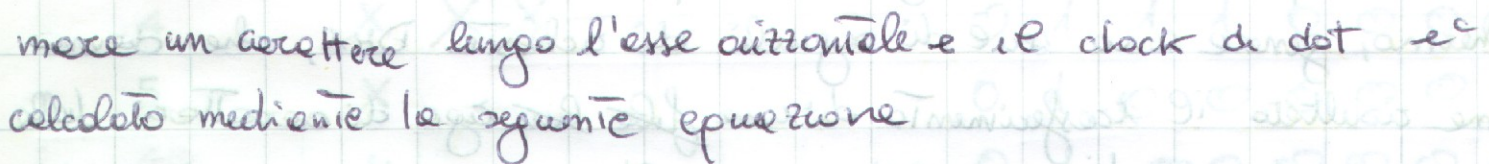 mare un carattere lungo l'asse orizzontale e il clock di dot è
calcolato mediante la seguente equazione